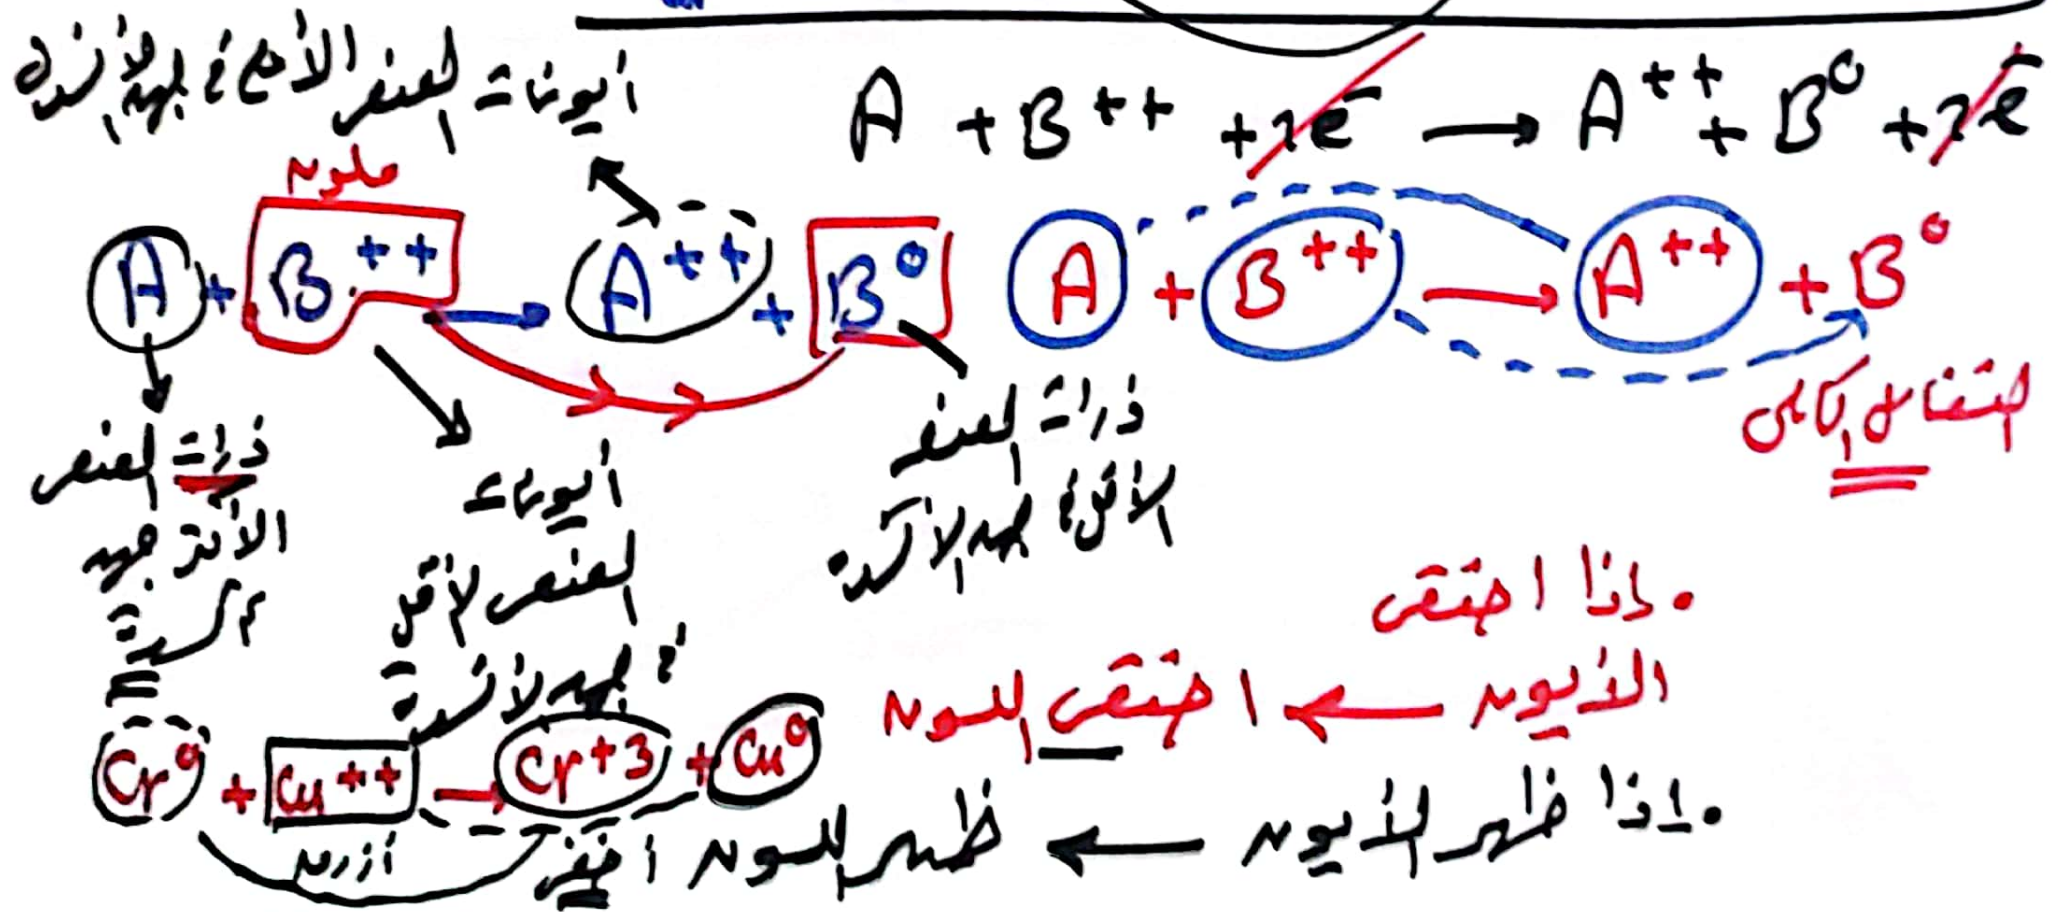 A + B++ + 2e⁻ → A++ + B⁰ + 2e⁻
أيونات العنصر الأعلى في جهد الأكسدة
ملون
A + B++ → A++ + B⁰
A + B++ → A++ + B⁰
اختفاء الكاثيون
ذرات العنصر
الأكثر جهد
أكسدة
أيونات
العنصر الأقل
في جهد الأكسدة
ذرات العنصر
الأقل في جهد الأكسدة
• إذا اختفى
الأيون ← اختفى اللون
• إذا ظهر الأيون ← ظهر اللون
Cr⁰ + Cu++ → Cr+3 + Cu⁰
أزرق
أخضر